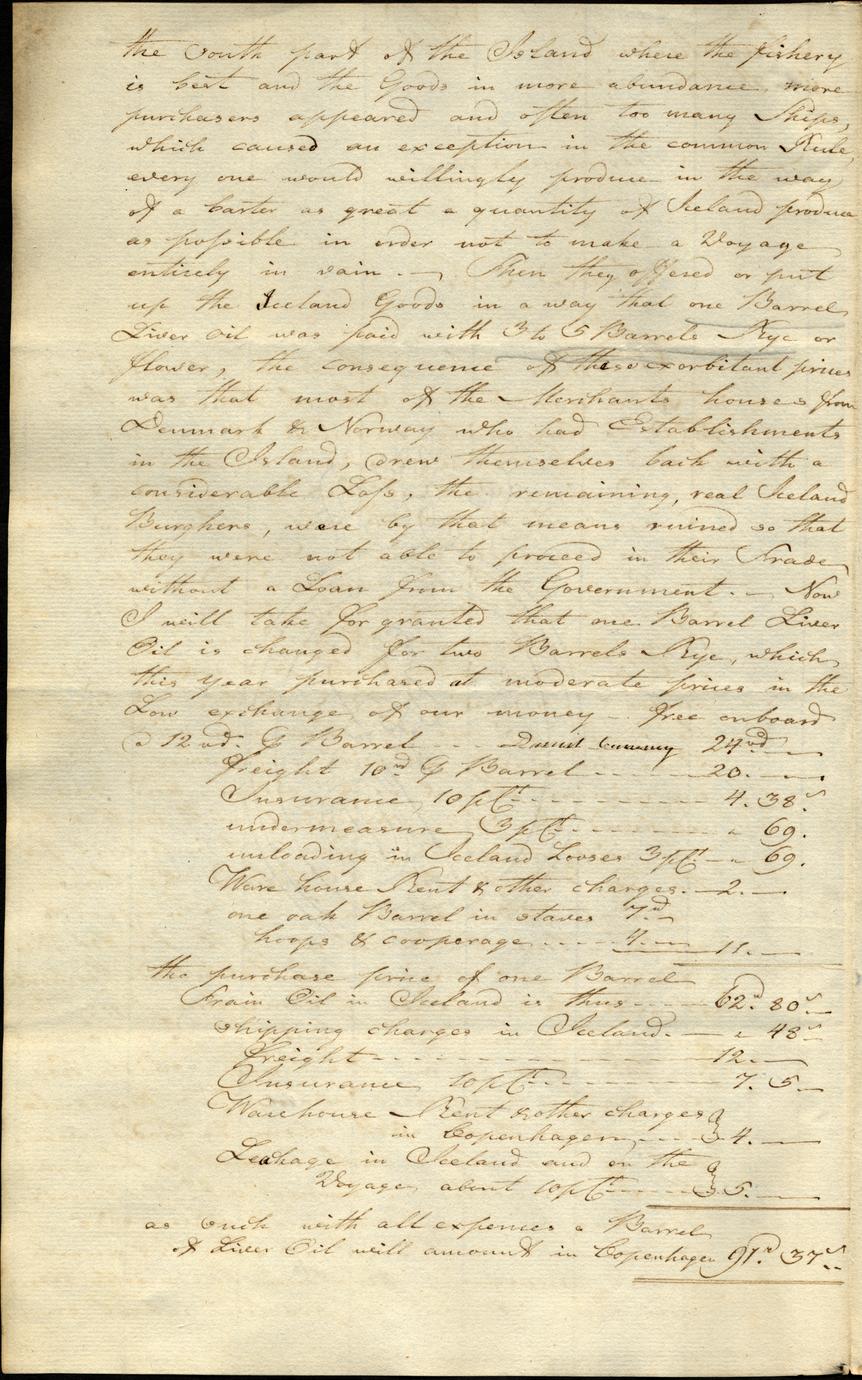 the South part of the Island where the fishery
is best and the Goods in more abundance, more
purchasers appeared and often too many Ships,
which caused an exception in the common Rule,
every one would willingly produce in the way
of a barter as great a quantity of Iceland produce
as possible in order not to make a Voyage
entirely in vain. — Then they offered or put
up the Iceland Goods in a way that one Barrel
Liver oil was paid with 3 to 5 Barrels Rye or
flower, the consequence of these exorbitant prices
was that most of the Merchants houses from
Denmark & Norway who had Establishments
in the Island, drew themselves back with a
considerable Loss, the remaining, real Iceland
Burghers, were by that means ruined so that
they were not able to proceed in their Trade
without a Loan from the Government. — Now
I will take for granted that one Barrel Liver
Oil is changed for two Barrels Rye, which
this year purchased at moderate prices in the
Low exchange of our money - free onboard
a 12 rd. P Barrel - - Danish Currency 24rd —
Freight 10rd P Barrel - - - - - 20. —
Insurance 10 pCt - - - - - - - 4. 38s
undermeasure 3 pCt - - - - - - " 69.
unloading in Iceland Looses 3 pCt — " 69.
Ware house Rent & other charges. — 2. —
one oak Barrel in staves 7rd —
hoops & cooperage - - - - 4. — 11. —
the purchase price of one Barrel
Train Oil in Iceland is thus - - - - 62rd 80s —
shipping charges in Iceland. — " 48s
Freight - - - - - - - - - - 12. —
Insurance 10 pCt - - - - - - 7. 5. —
Warehouse Rent & other charges
in Copenhagen - - - - 4. —
Leakage in Iceland and on the
Voyage about 10 pCt - - - - 5. —
as such with all expenses a Barrel
of Liver Oil will amount in Copenhagen 91rd 37s